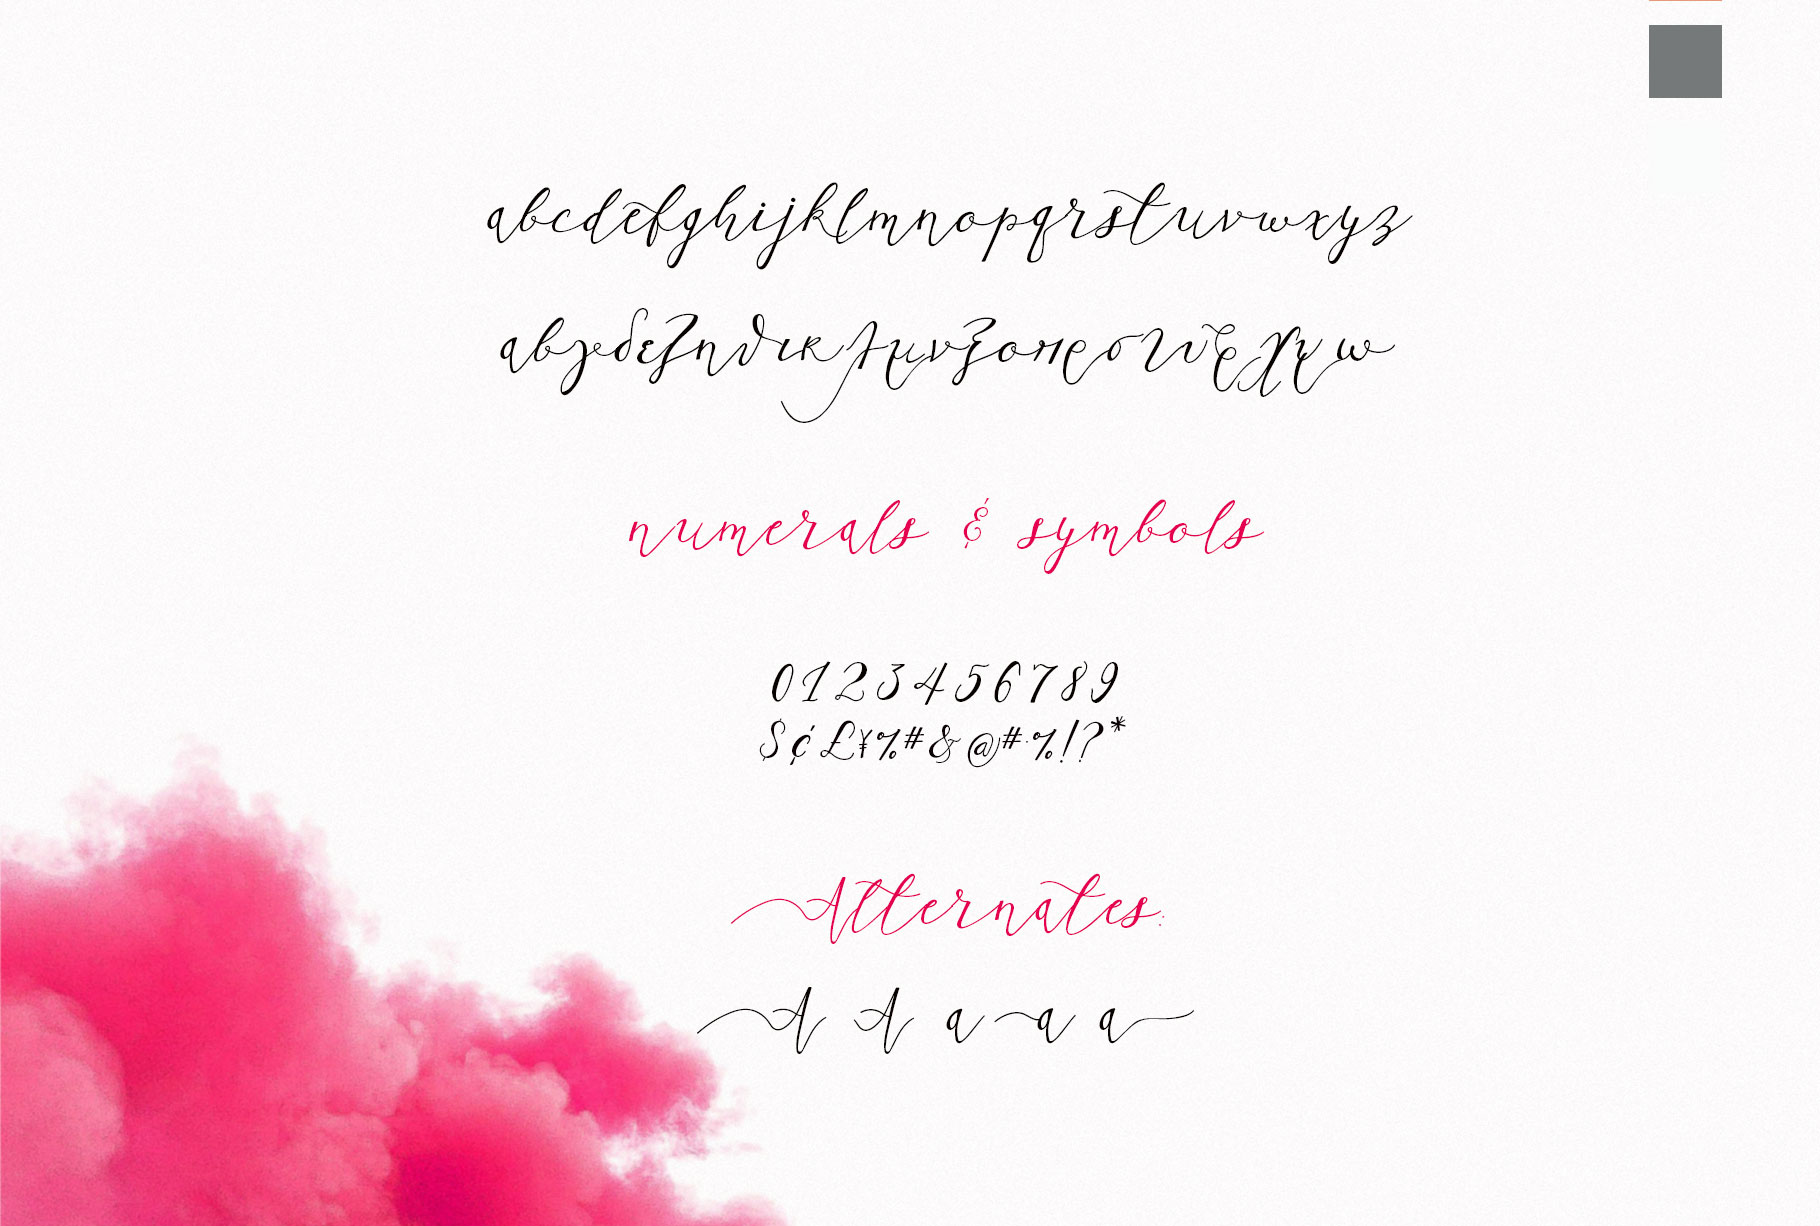 abcdefghijklmnopqrstuvwxyz
αβγδεζηθικλμνξοπρστυφχψω
numerals & symbols
0123456789
$¢£¥%#&@#·%!?*
Alternates:
A A a a a